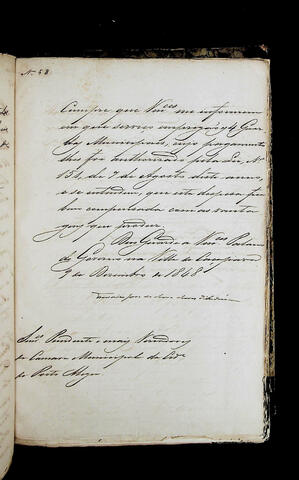 N. 58
Cumpre que Vm.ces me informem
em que serviço empregão 4 Guar
das Municipaes, cujo pagamento
lhes foi authorizado pela Lei N.
151, de 7 de Agosto deste anno,
e se entendem, que esta despesa foi
bem comprehendida com as vanta
gens que produz.
Deos Guarde a Vm.ces Palacio
do Governo na Villa de Caçapava
9 de Dezembro de 1848
Senr.es Presidente e mais Vereadores
da Camara Municipal da Cid.e
de Porto Alegre